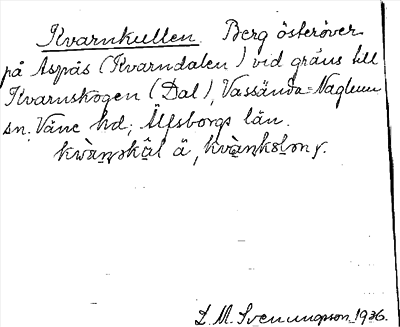 Kvarnkullen. Berg österöver
på Aspås (Kvarndalen) vid gräns till
Kvarnskogen (Dal), Vassända-Naglum
sn. Väne hd; Älfsborgs län.
S. M. Svenungson 1936.